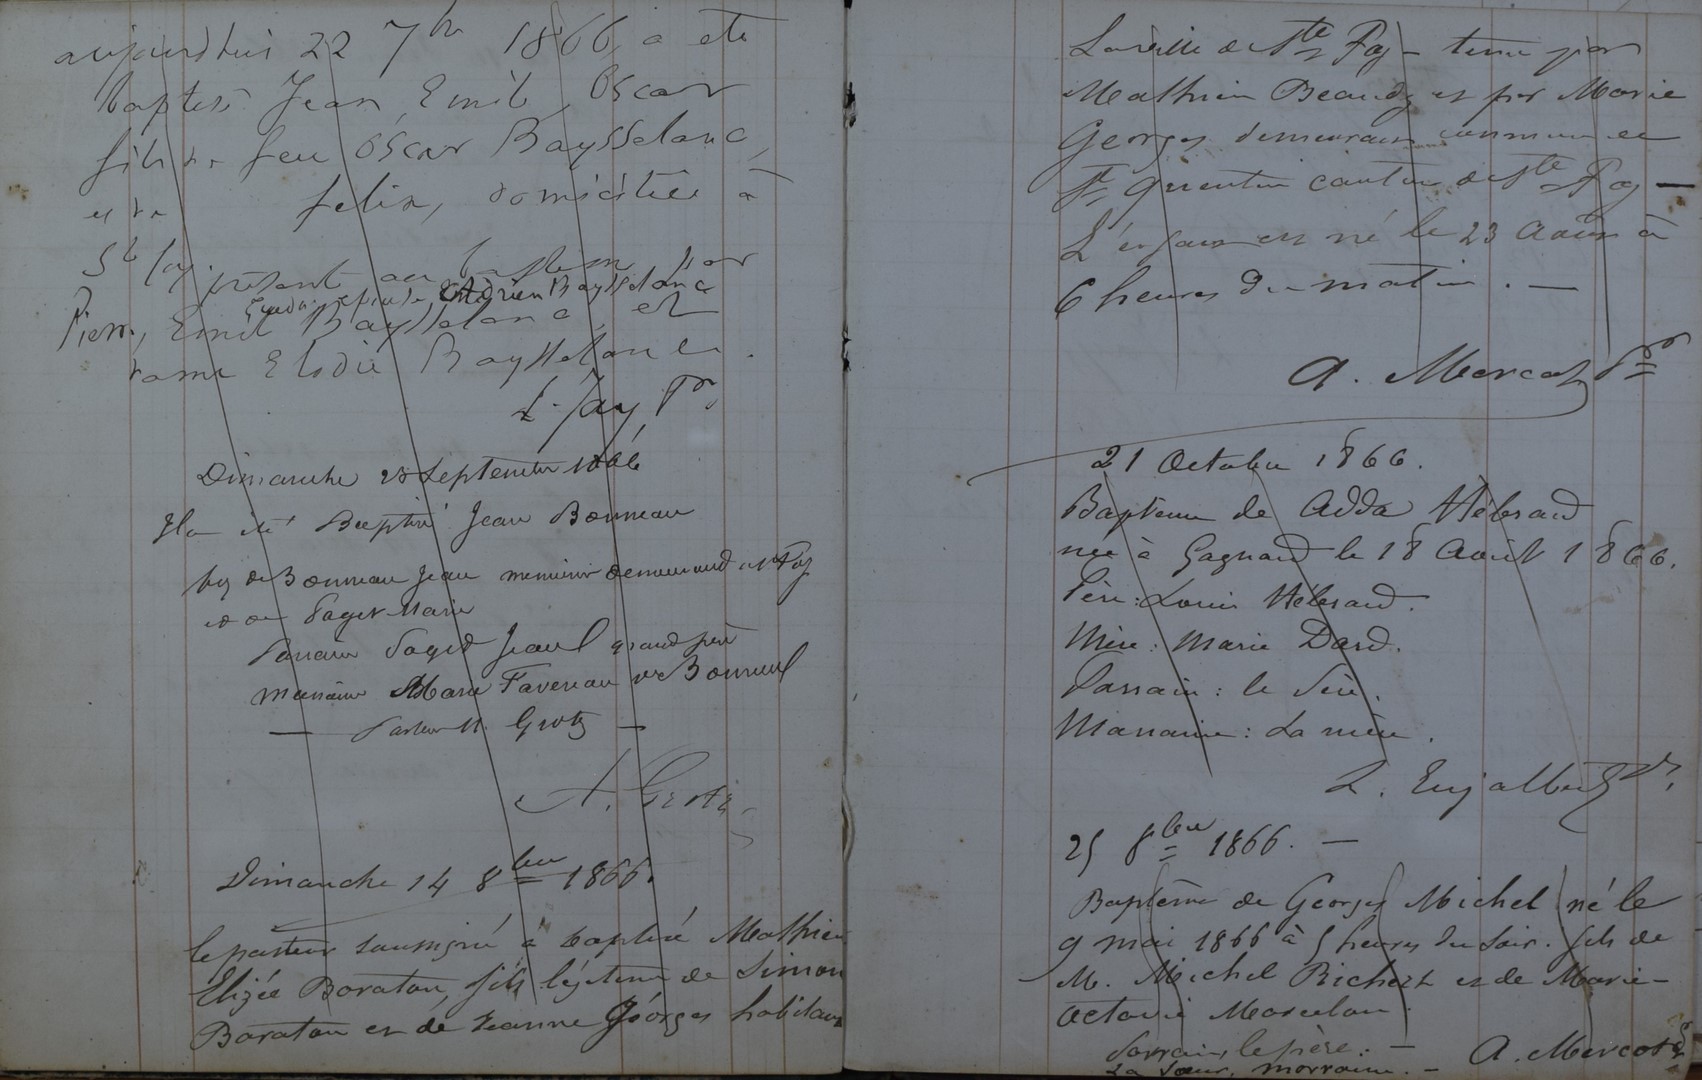 aujourdhui 22 7bre 1866, a ete
baptisé Jean, Emile, Oscar
fils de feu Oscar Baysselanc,
et de felix, domiciliée à
Ste foy. présent au baptem par
Adrien Baysselance
Pierre, Emile Baysselance, et
dame Elodie Baysselance.
L. Jay Pr.
Dimanche Septembre 1866
Il a été Baptisé Jean Bonneau
fils de Bonneau Jean menuisier demeurand à Ste Foy
et de Paget Marie
Parrain Paget Jean grand père
marraine Marie Faveneau ve Bonneau
— Pasteur M. Grotz —
A. Grotz
Dimanche 14 8bre 1866.
le pasteur soussigné a baptisé Mathieu
Elizée Boraton, fils légitime de Simon
Boraton et de Jeanne Géorges habitant
La ville de Ste Foy – tenu par
Mathieu Beaudy et par Marie
Georges demeurant commune de
St Quentin canton de Ste Foy —
L'enfant est né le 23 Août à
6 heures du matin. —
A. Mercat Pr
21 Octobre 1866.
Baptême de Adda Hébrard
née à Gagnard le 18 Août 1866.
Père : Louis Hébrard.
Mère : Marie Dard.
Parrain : le Père.
Marraine : La mère.
L. Enjalbert Pr.
25 8bre 1866. —
Baptême de Georges Michel né le
9 mai 1866 à 5 heures du soir. fils de
M. Michel Richert et de Marie-
Octavie Marcelau.
Parrain, le père. —
La sœur, marraine. – A. Mercat